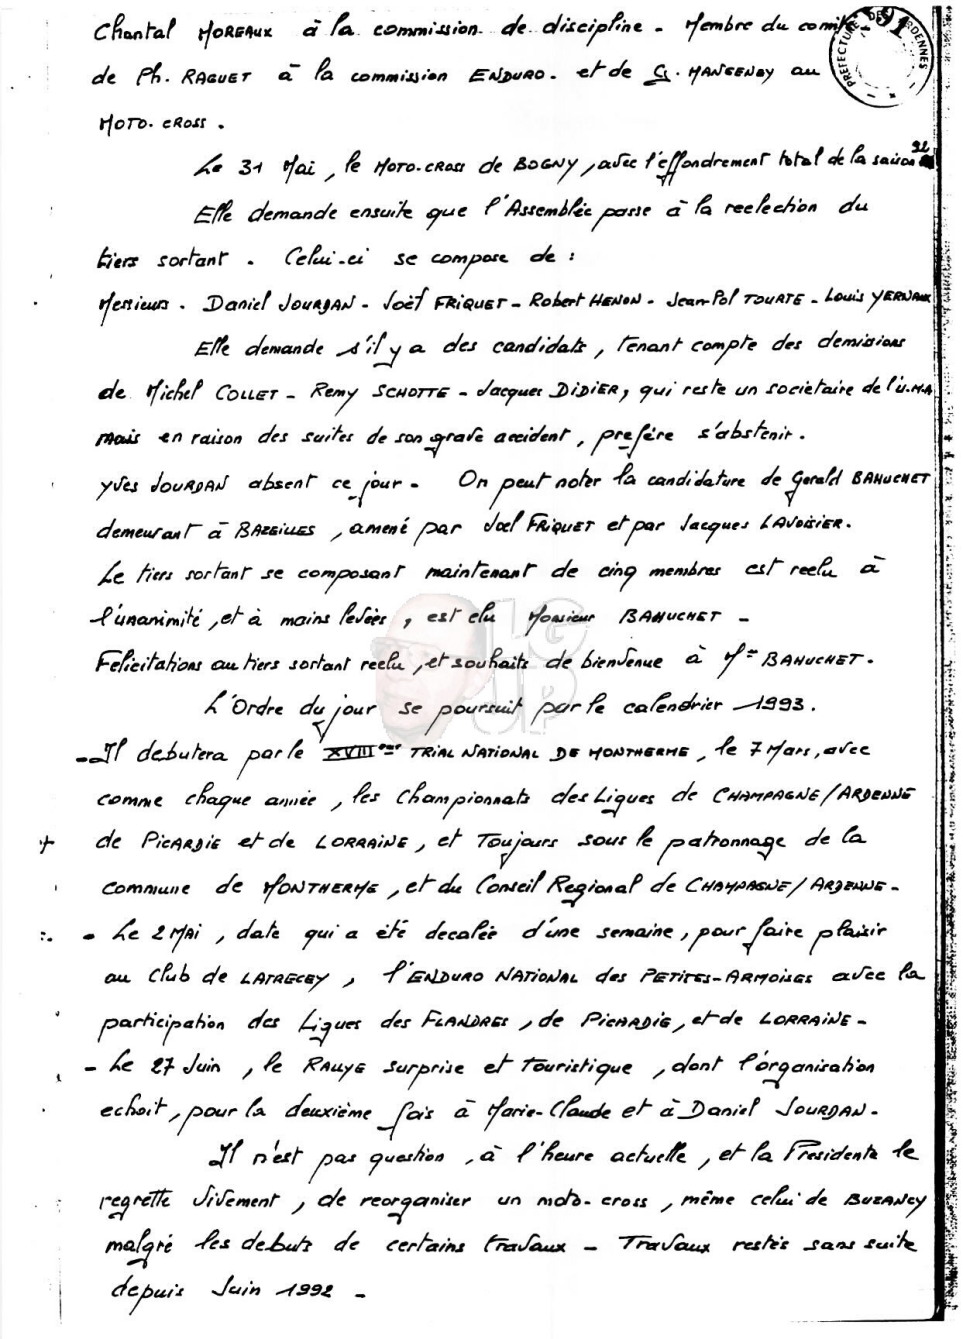 Chantal MOREAUX à la commission de discipline - Membre du comité
de Ph. RAGUET à la commission ENDURO - et de G. MANGENOY au
MOTO-CROSS.
PREFECTURE DES ARDENNES
91
Le 31 Mai, le MOTO-CROSS de BOGNY, avec l'effondrement total de la saison 92
Elle demande ensuite que l'Assemblée passe à la reelection du
tiers sortant. Celui-ci se compose de :
Messieurs. Daniel JOURDAN - Joël FRIQUET - Robert HENON - Jean-Pol TOURTE - Louis YERNAUX
Elle demande s'il y a des candidats, tenant compte des demissions
de Michel COLLET - Remy SCHOTTE - Jacques DIDIER, qui reste un societaire de l'U.M.A
mais en raison des suites de son grave accident, prefère s'abstenir.
Yves JOURDAN absent ce jour - On peut noter la candidature de Gerald BAHUCHET
demeurant à BAZEILLES, amené par Joel FRIQUET et par Jacques LAVOISIER.
Le tiers sortant se composant maintenant de cinq membres est reelu à
l'unanimité, et à mains levées, est elu Monsieur BAHUCHET -
Felicitations au tiers sortant reelu, et souhaits de bienvenue à Mr BAHUCHET.
LG UP
L'Ordre du jour se poursuit par le calendrier 1993.
- Il debutera par le XVIIIeme TRIAL NATIONAL DE MONTHERME, le 7 Mars, avec
comme chaque année, les Championnats des Ligues de CHAMPAGNE/ARDENNE
de PICARDIE et de LORRAINE, et Toujours sous le patronnage de la
commune de MONTHERME, et du Conseil Regional de CHAMPAGNE/ARDENNE -
- Le 2 MAI, date qui a été decalée d'une semaine, pour faire plaisir
au Club de LATRECEY, l'ENDURO NATIONAL des PETITES-ARMOISES avec la
participation des Ligues des FLANDRES, de PICARDIE, et de LORRAINE -
- Le 27 Juin, le RALLYE surprise et Touristique, dont l'organisation
echoit, pour la deuxième fois à Marie-Claude et à Daniel JOURDAN -
Il n'est pas question, à l'heure actuelle, et la Presidente le
regrette vivement, de reorganiser un moto-cross, même celui de BUZANCY
malgré les debuts de certains travaux - Travaux restés sans suite
depuis Juin 1992 -